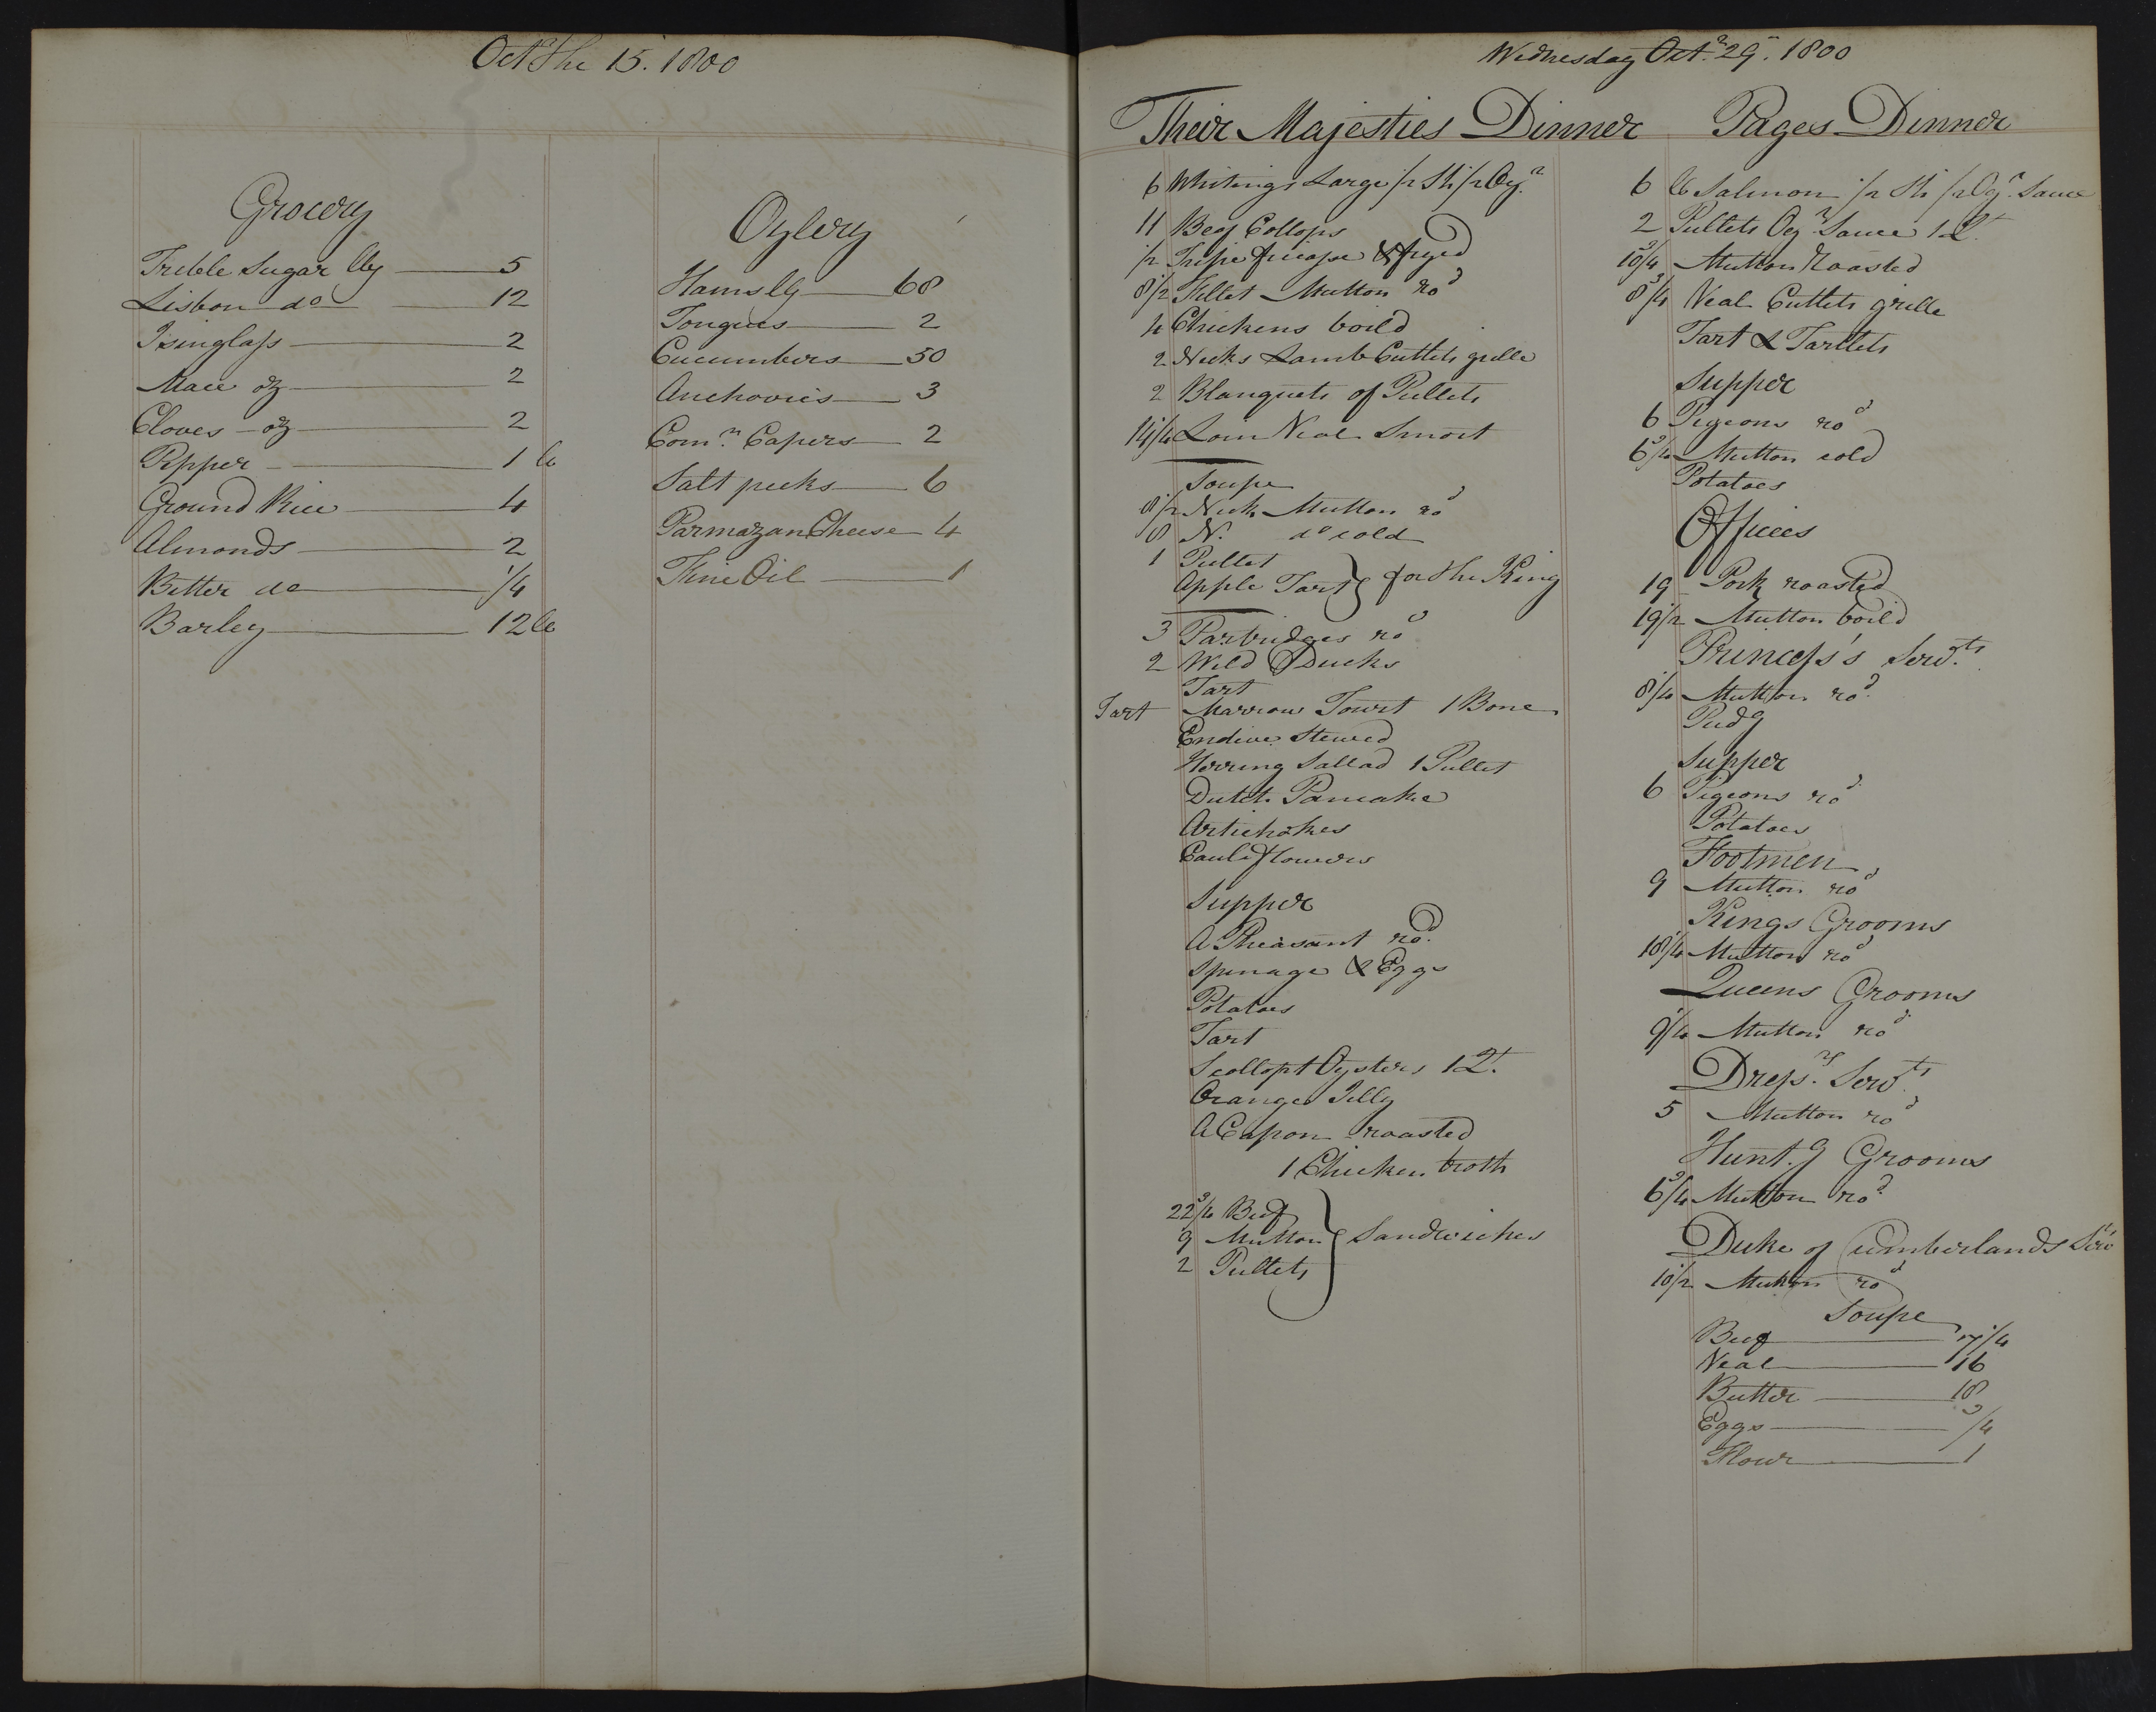 Octr the 15. 1800
Grocery
Treble Sugar lbs 5
Lisbon do 12
Isinglass 2
Mace oz 2
Cloves oz 2
Pepper 1 lb
Ground Rice 4
Almonds 2
Bitter do 1/4
Barley 12 lb
Oylery
Hams lbs 68
Tongues 2
Cucumbers 50
Anchovies 3
Comn Capers 2
Salt pecks 6
Parmazan Cheese 4
Fine Oil 1
Wednesday Octr 29. 1800
Their Majesties Dinner
6 Whitings Large 1/2 Sh 1/2 Oyr
11 Beef Collops
1/2 Tripe fricasse & fryed
8 1/2 Fillet Mutton rod
4 Chickens boild
2 Necks Lamb Cuttlets grille
2 Blanquets of Pullets
14 1/4 Loin Veal Smort
Soupe
8 1/2 Neck Mutton rod
8 N. do cold
1 Pullet
Apple Tart } for the King
3 Partridges rod
2 Wild Ducks
Tart
Tart Marrow Tourt 1 Bone
Endive Stewed
Herring Sallad 1 Pullet
Dutch Pancake
Artichokes
Cauliflowers
Supper
A Pheasant rod.
Spinage & Eggs
Potatoes
Tart
Scollopt Oysters 1 Qt.
Orange Jelly
A Capon roasted
1 Chicken broth
22 3/4 Beef
9 Mutton } Sandwiches
2 Pullets
Pages Dinner
6 lb Salmon 1/2 Sh 1/2 Oyr. Sauce
2 Pullets Oyr Sauce 1 Qt.
10 3/4 Mutton Roasted
8 3/4 Veal Cuttlets grille
Tart & Tartlets
Supper
6 Pigeons rod
6 3/4 Mutton cold
Potatoes
Offices
19 Pork roasted
19 1/2 Mutton boild
Princess's Servts.
8 1/4 Mutton rod.
Pudg
Supper
6 Pigeons rod
Potatoes
Footmen
9 Mutton rod
Kings Grooms
18 1/4 Mutton rod
Queens Grooms
9 1/4 Mutton rod.
Dressrs. Servts
5 Mutton rod
Hunt.g Grooms
6 3/4 Mutton rod.
Duke of Cumberlands Servts
10 1/2 Mutton rod
Soupe
Beef 17 1/4
Veal 16
Butter 18
Eggs 3/4
Flour 1